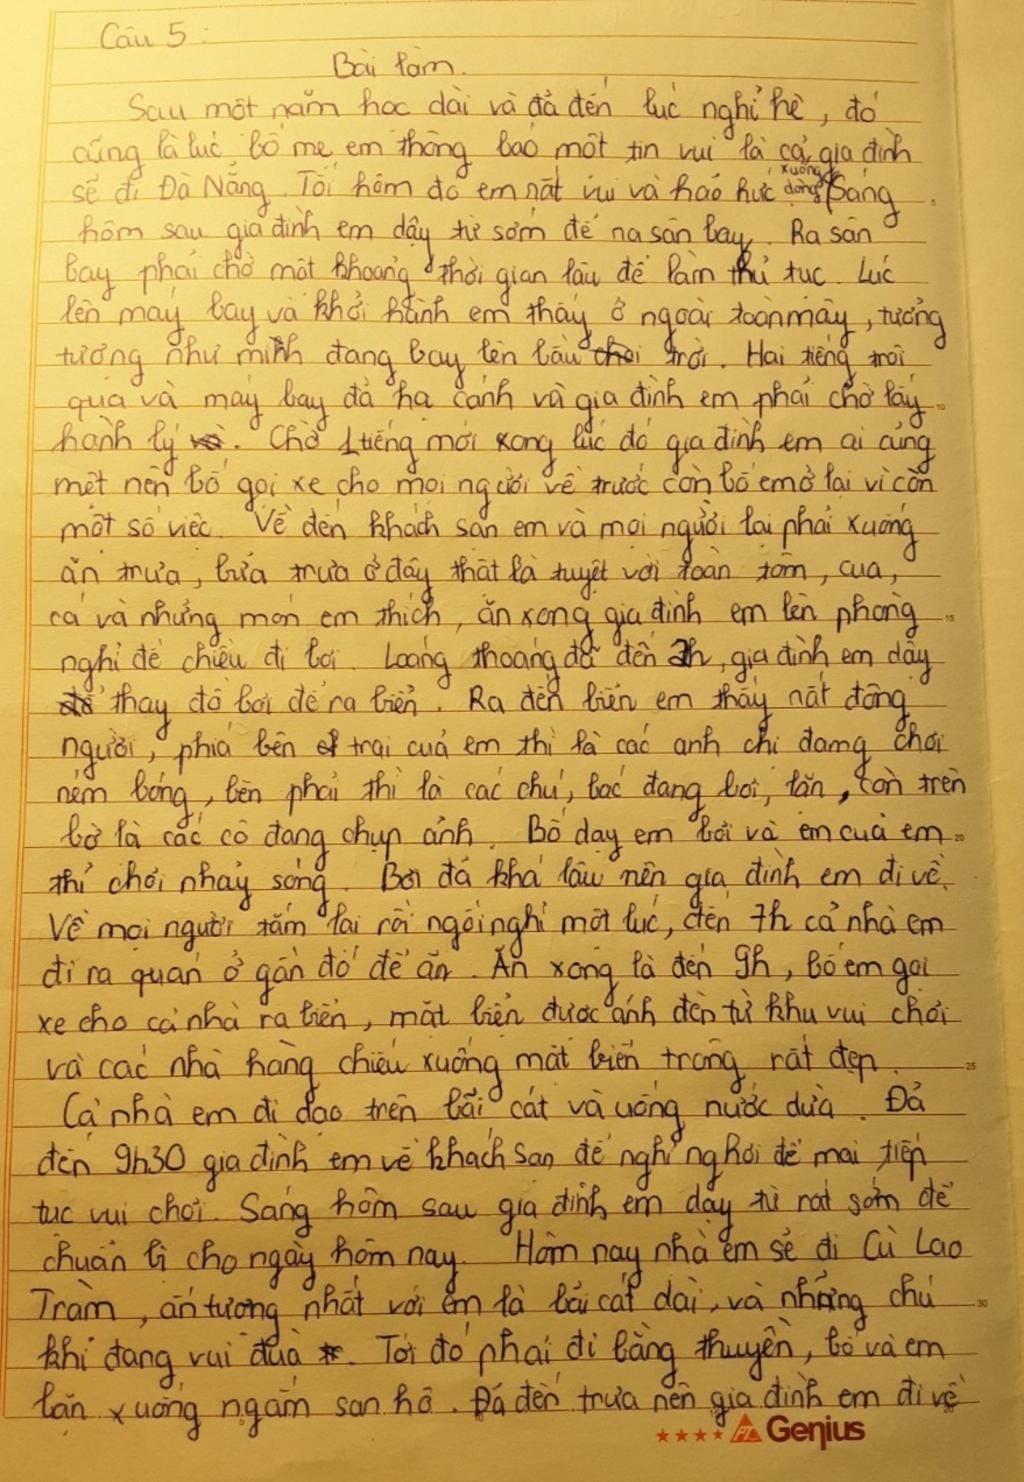 Câu 5:
Bài làm.
Sau một năm học dài và đã đến lúc nghỉ hè, đó
cũng là lúc bố mẹ em thông báo một tin vui là cả gia đình
sẽ đi Đà Nẵng. Tối hôm đó em nất vui và háo hức xuống dòng Sáng
hôm sau gia đình em dậy từ sớm để na sân bay. Ra sân
bay phải chờ một khoảng thời gian lâu để làm thủ tục. Lúc
lên máy bay và khởi hành em thấy ở ngoài toàn mây, tưởng
tượng như mình đang bay lên bầu trời. Hai tiếng trôi
qua và máy bay đã hạ cánh và gia đình em phải chờ lấy
hành lý. Chờ 1 tiếng mới xong lúc đó gia đình em ai cũng
mệt nên bố gọi xe cho mọi người về trước còn bố em ở lại vì còn
một số việc. Về đến khách sạn em và mọi người lại phải xuống
ăn trưa, bữa trưa ở đây thật là tuyệt vời toàn tôm, cua,
cá và những món em thích, ăn xong gia đình em lên phòng
nghỉ để chiều đi bơi. Loáng thoáng đã đến 2h, gia đình em dậy
thay đồ bơi để ra biển. Ra đến biển em thấy nất đông
người, phía bên trái của em thì là các anh chị đang chơi
ném bóng, bên phải thì là các chú, bác đang bơi, lặn, còn trên
bờ là các cô đang chụp ảnh. Bố dạy em bơi và em của em
thì chơi nhảy sóng. Bơi đã khá lâu nên gia đình em đi về.
Về mọi người tắm lại rồi ngồi nghỉ một lúc, đến 7h cả nhà em
đi ra quán ở gần đó để ăn. Ăn xong là đến 9h, bố em gọi
xe cho cả nhà ra biển, mặt biển được ánh đèn từ khu vui chơi
và các nhà hàng chiếu xuống mặt biển trông rất đẹp.
Cả nhà em đi dạo trên bãi cát và uống nước dừa. Đã
đến 9h30 gia đình em về khách sạn để nghỉ ngơi để mai tiếp
tục vui chơi. Sáng hôm sau gia đình em dậy từ rất sớm để
chuẩn bị cho ngày hôm nay. Hôm nay nhà em sẽ đi Cù Lao
Tràm, ấn tượng nhất với em là bãi cát dài, và những chú
khỉ đang vui đùa. Tới đó phải đi bằng thuyền, bố và em
lặn xuống ngắm san hô. Đã đến trưa nên gia đình em đi về
Genius